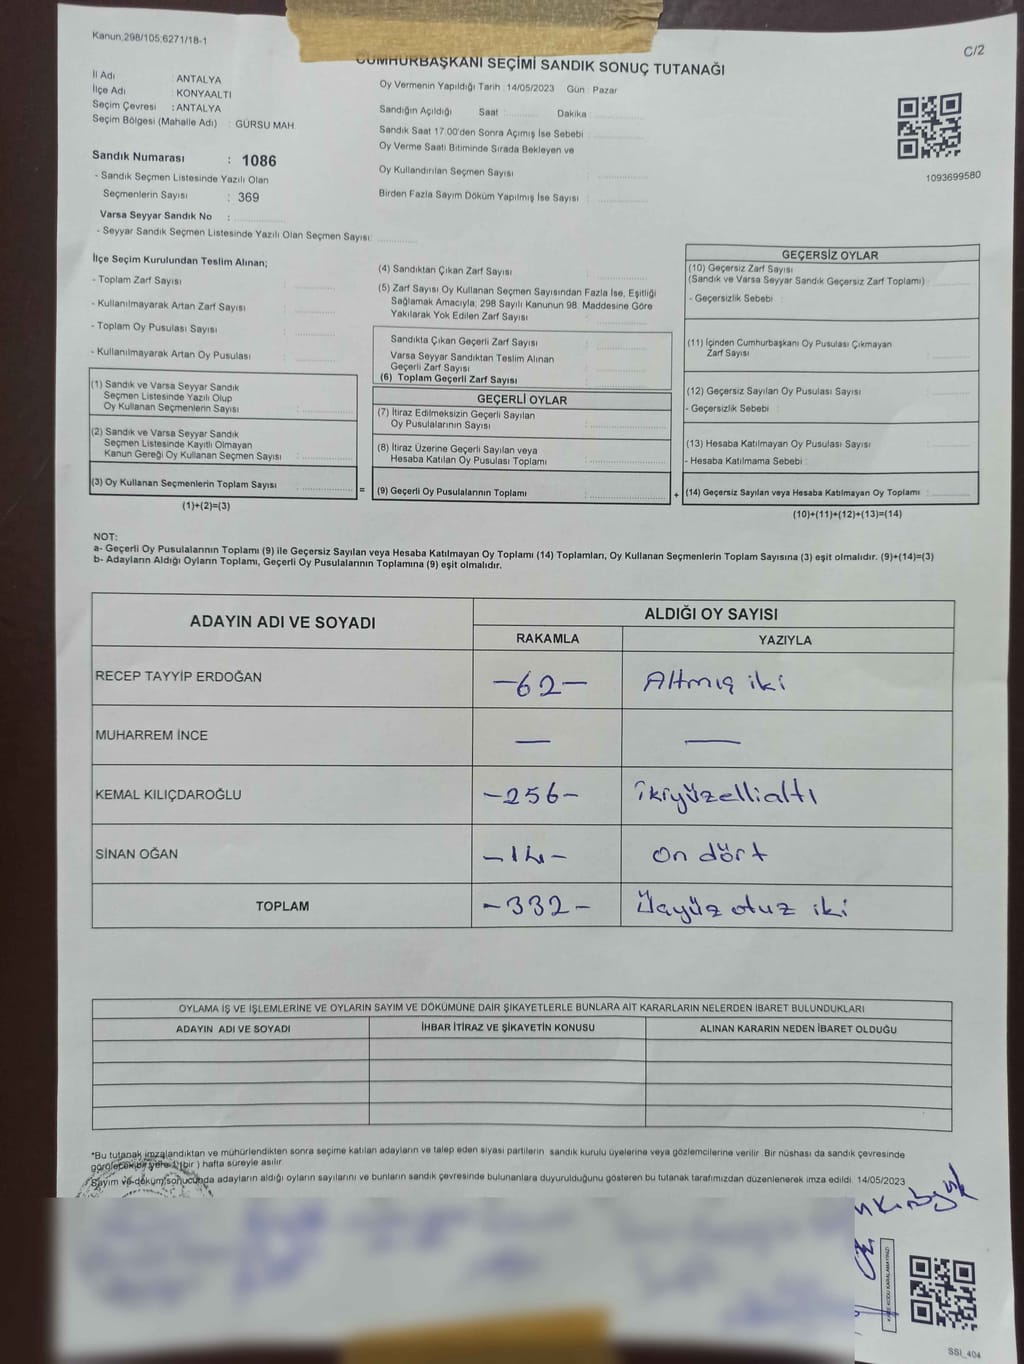 Kanun,298/105,6271/18-1
C/2
CUMHURBAŞKANI SEÇİMİ SANDIK SONUÇ TUTANAĞI
İl Adı : ANTALYA
İlçe Adı : KONYAALTI
Seçim Çevresi : ANTALYA
Seçim Bölgesi (Mahalle Adı) : GÜRSU MAH.
Oy Vermenin Yapıldığı Tarih : 14/05/2023 Gün : Pazar
Sandığın Açıldığı Saat : Dakika :
Sandık Saat 17:00'den Sonra Açımış İse Sebebi :
Oy Verme Saati Bitiminde Sırada Bekleyen ve
Oy Kullandırılan Seçmen Sayısı :
Birden Fazla Sayım Döküm Yapılmış İse Sayısı :
1093699580
Sandık Numarası : 1086
- Sandık Seçmen Listesinde Yazılı Olan
Seçmenlerin Sayısı : 369
Varsa Seyyar Sandık No :
- Seyyar Sandık Seçmen Listesinde Yazılı Olan Seçmen Sayısı:
İlçe Seçim Kurulundan Teslim Alınan;
- Toplam Zarf Sayısı :
- Kullanılmayarak Artan Zarf Sayısı :
- Toplam Oy Pusulası Sayısı :
- Kullanılmayarak Artan Oy Pusulası :
(1) Sandık ve Varsa Seyyar Sandık
Seçmen Listesinde Yazılı Olup
Oy Kullanan Seçmenlerin Sayısı :
(2) Sandık ve Varsa Seyyar Sandık
Seçmen Listesinde Kayıtlı Olmayan
Kanun Gereği Oy Kullanan Seçmen Sayısı :
(3) Oy Kullanan Seçmenlerin Toplam Sayısı :
(1)+(2)=(3)
(4) Sandıktan Çıkan Zarf Sayısı :
(5) Zarf Sayısı Oy Kullanan Seçmen Sayısından Fazla İse, Eşitliği
Sağlamak Amacıyla, 298 Sayılı Kanunun 98. Maddesine Göre
Yakılarak Yok Edilen Zarf Sayısı :
Sandıkta Çıkan Geçerli Zarf Sayısı :
Varsa Seyyar Sandıktan Teslim Alınan
Geçerli Zarf Sayısı :
(6) Toplam Geçerli Zarf Sayısı :
GEÇERLİ OYLAR
(7) İtiraz Edilmeksizin Geçerli Sayılan
Oy Pusulalarının Sayısı :
(8) İtiraz Üzerine Geçerli Sayılan veya
Hesaba Katılan Oy Pusulası Toplamı :
= (9) Geçerli Oy Pusulalarının Toplamı :
GEÇERSİZ OYLAR
(10) Geçersiz Zarf Sayısı
(Sandık ve Varsa Seyyar Sandık Geçersiz Zarf Toplamı) :
- Geçersizlik Sebebi :
(11) İçinden Cumhurbaşkanı Oy Pusulası Çıkmayan
Zarf Sayısı :
(12) Geçersiz Sayılan Oy Pusulası Sayısı :
- Geçersizlik Sebebi :
(13) Hesaba Katılmayan Oy Pusulası Sayısı :
- Hesaba Katılmama Sebebi :
+ (14) Geçersiz Sayılan veya Hesaba Katılmayan Oy Toplamı :
(10)+(11)+(12)+(13)=(14)
NOT:
a- Geçerli Oy Pusulalarının Toplamı (9) ile Geçersiz Sayılan veya Hesaba Katılmayan Oy Toplamı (14) Toplamları, Oy Kullanan Seçmenlerin Toplam Sayısına (3) eşit olmalıdır. (9)+(14)=(3)
b- Adayların Aldığı Oyların Toplamı, Geçerli Oy Pusulalarının Toplamına (9) eşit olmalıdır.
ADAYIN ADI VE SOYADI ALDIĞI OY SAYISI
RAKAMLA YAZIYLA
RECEP TAYYİP ERDOĞAN -62- Altmış iki
MUHARREM İNCE — —
KEMAL KILIÇDAROĞLU -256- İkiyüzellialtı
SİNAN OĞAN -14- On dört
TOPLAM -332- Üçyüz otuz iki
OYLAMA İŞ VE İŞLEMLERİNE VE OYLARIN SAYIM VE DÖKÜMÜNE DAİR ŞİKAYETLERLE BUNLARA AİT KARARLARIN NELERDEN İBARET BULUNDUKLARI
ADAYIN ADI VE SOYADI İHBAR İTİRAZ VE ŞİKAYETİN KONUSU ALINAN KARARIN NEDEN İBARET OLDUĞU
*Bu tutanak imzalandıktan ve mühürlendikten sonra seçime katılan adayların ve talep eden siyasi partilerin sandık kurulu üyelerine veya gözlemcilerine verilir. Bir nüshası da sandık çevresinde
görülecek bir yere 1 (bir ) hafta süreyle asılır.
Sayım ve döküm sonucunda adayların aldığı oyların sayılarını ve bunların sandık çevresinde bulunanlara duyurulduğunu gösteren bu tutanak tarafımızdan düzenlenerek imza edildi. 14/05/2023
SSİ_404